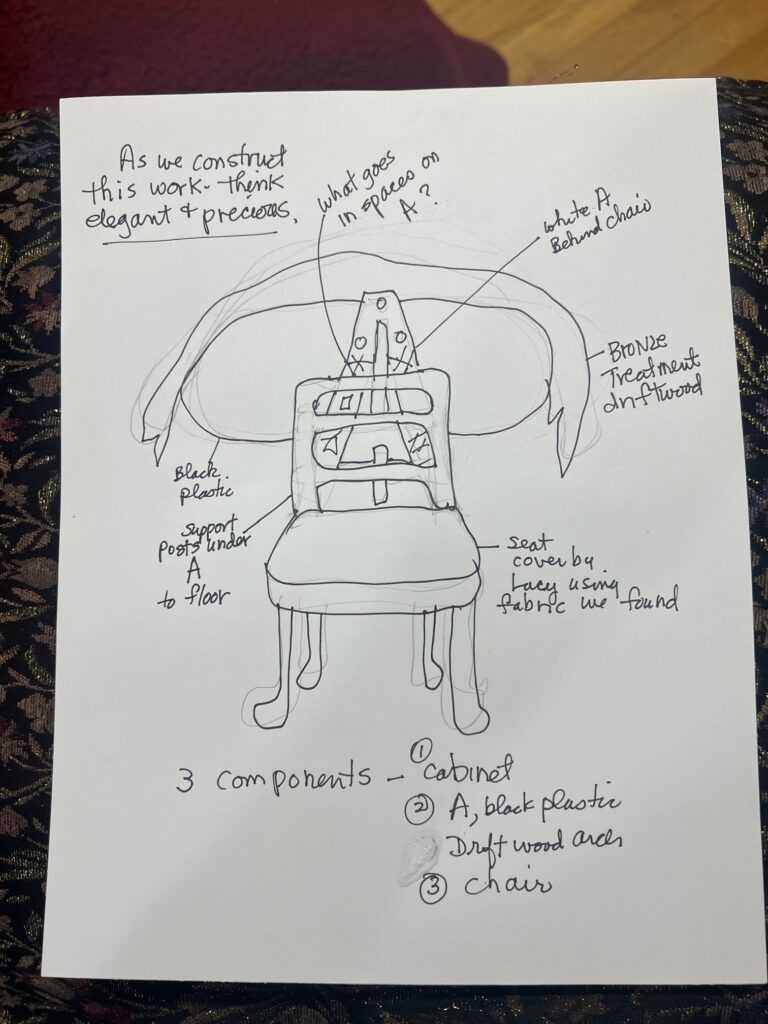 As we construct
this work - think
elegant & precious.
what goes
in spaces on
A?
white A
Behind chair
Bronze
Treatment
driftwood
Black
plastic
support
posts under
A
to floor
seat
cover by
Lacy using
fabric we found
3 components - ① cabinet
② A, black plastic
Driftwood arch
③ chair